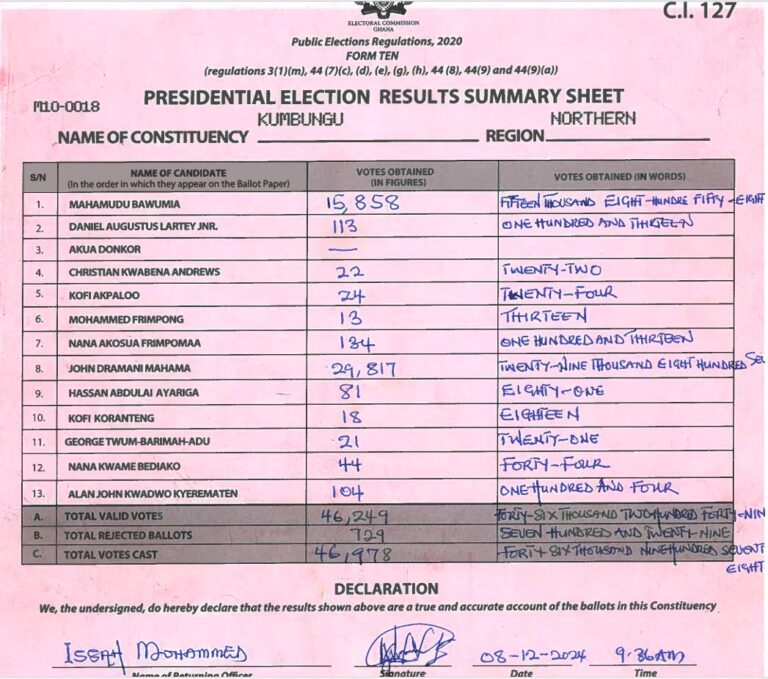 C.I. 127
ELECTORAL COMMISSION
GHANA
Public Elections Regulations, 2020
FORM TEN
(regulations 3(1)(m), 44 (7)(c), (d), (e), (g), (h), 44 (8), 44(9) and 44(9)(a))
M10-0018 PRESIDENTIAL ELECTION RESULTS SUMMARY SHEET
NAME OF CONSTITUENCY KUMBUNGU REGION NORTHERN
S/N NAME OF CANDIDATE (In the order in which they appear on the Ballot Paper) VOTES OBTAINED (IN FIGURES) VOTES OBTAINED (IN WORDS)
1. MAHAMUDU BAWUMIA 15,858 FIFTEEN THOUSAND EIGHT-HUNDRE FIFTY-EIGHT
2. DANIEL AUGUSTUS LARTEY JNR. 113 ONE HUNDRED AND THIRTEEN
3. AKUA DONKOR —
4. CHRISTIAN KWABENA ANDREWS 22 TWENTY-TWO
5. KOFI AKPALOO 24 TWENTY-FOUR
6. MOHAMMED FRIMPONG 13 THIRTEEN
7. NANA AKOSUA FRIMPOMAA 134 ONE HUNDRED AND THIRTEEN
8. JOHN DRAMANI MAHAMA 29,817 TWENTY-NINE THOUSAND EIGHT HUNDRED SE
9. HASSAN ABDULAI AYARIGA 81 EIGHTY-ONE
10. KOFI KORANTENG 18 EIGHTEEN
11. GEORGE TWUM-BARIMAH-ADU 21 TWENTY-ONE
12. NANA KWAME BEDIAKO 44 FORTY-FOUR
13. ALAN JOHN KWADWO KYEREMATEN 104 ONE HUNDRED AND FOUR
A. TOTAL VALID VOTES 46,249 FORTY-SIX THOUSAND TWO HUNDRED FORTY-NIN
B. TOTAL REJECTED BALLOTS 729 SEVEN HUNDRED AND TWENTY-NINE
C. TOTAL VOTES CAST 46,978 FORTY-SIX THOUSAND NINE HUNDRED SEVENT
EIGHT
DECLARATION
We, the undersigned, do hereby declare that the results shown above are a true and accurate account of the ballots in this Constituency
ISSAH MOHAMMED 08-12-2024 9:36AM
Name of Returning Officer Signature Date Time